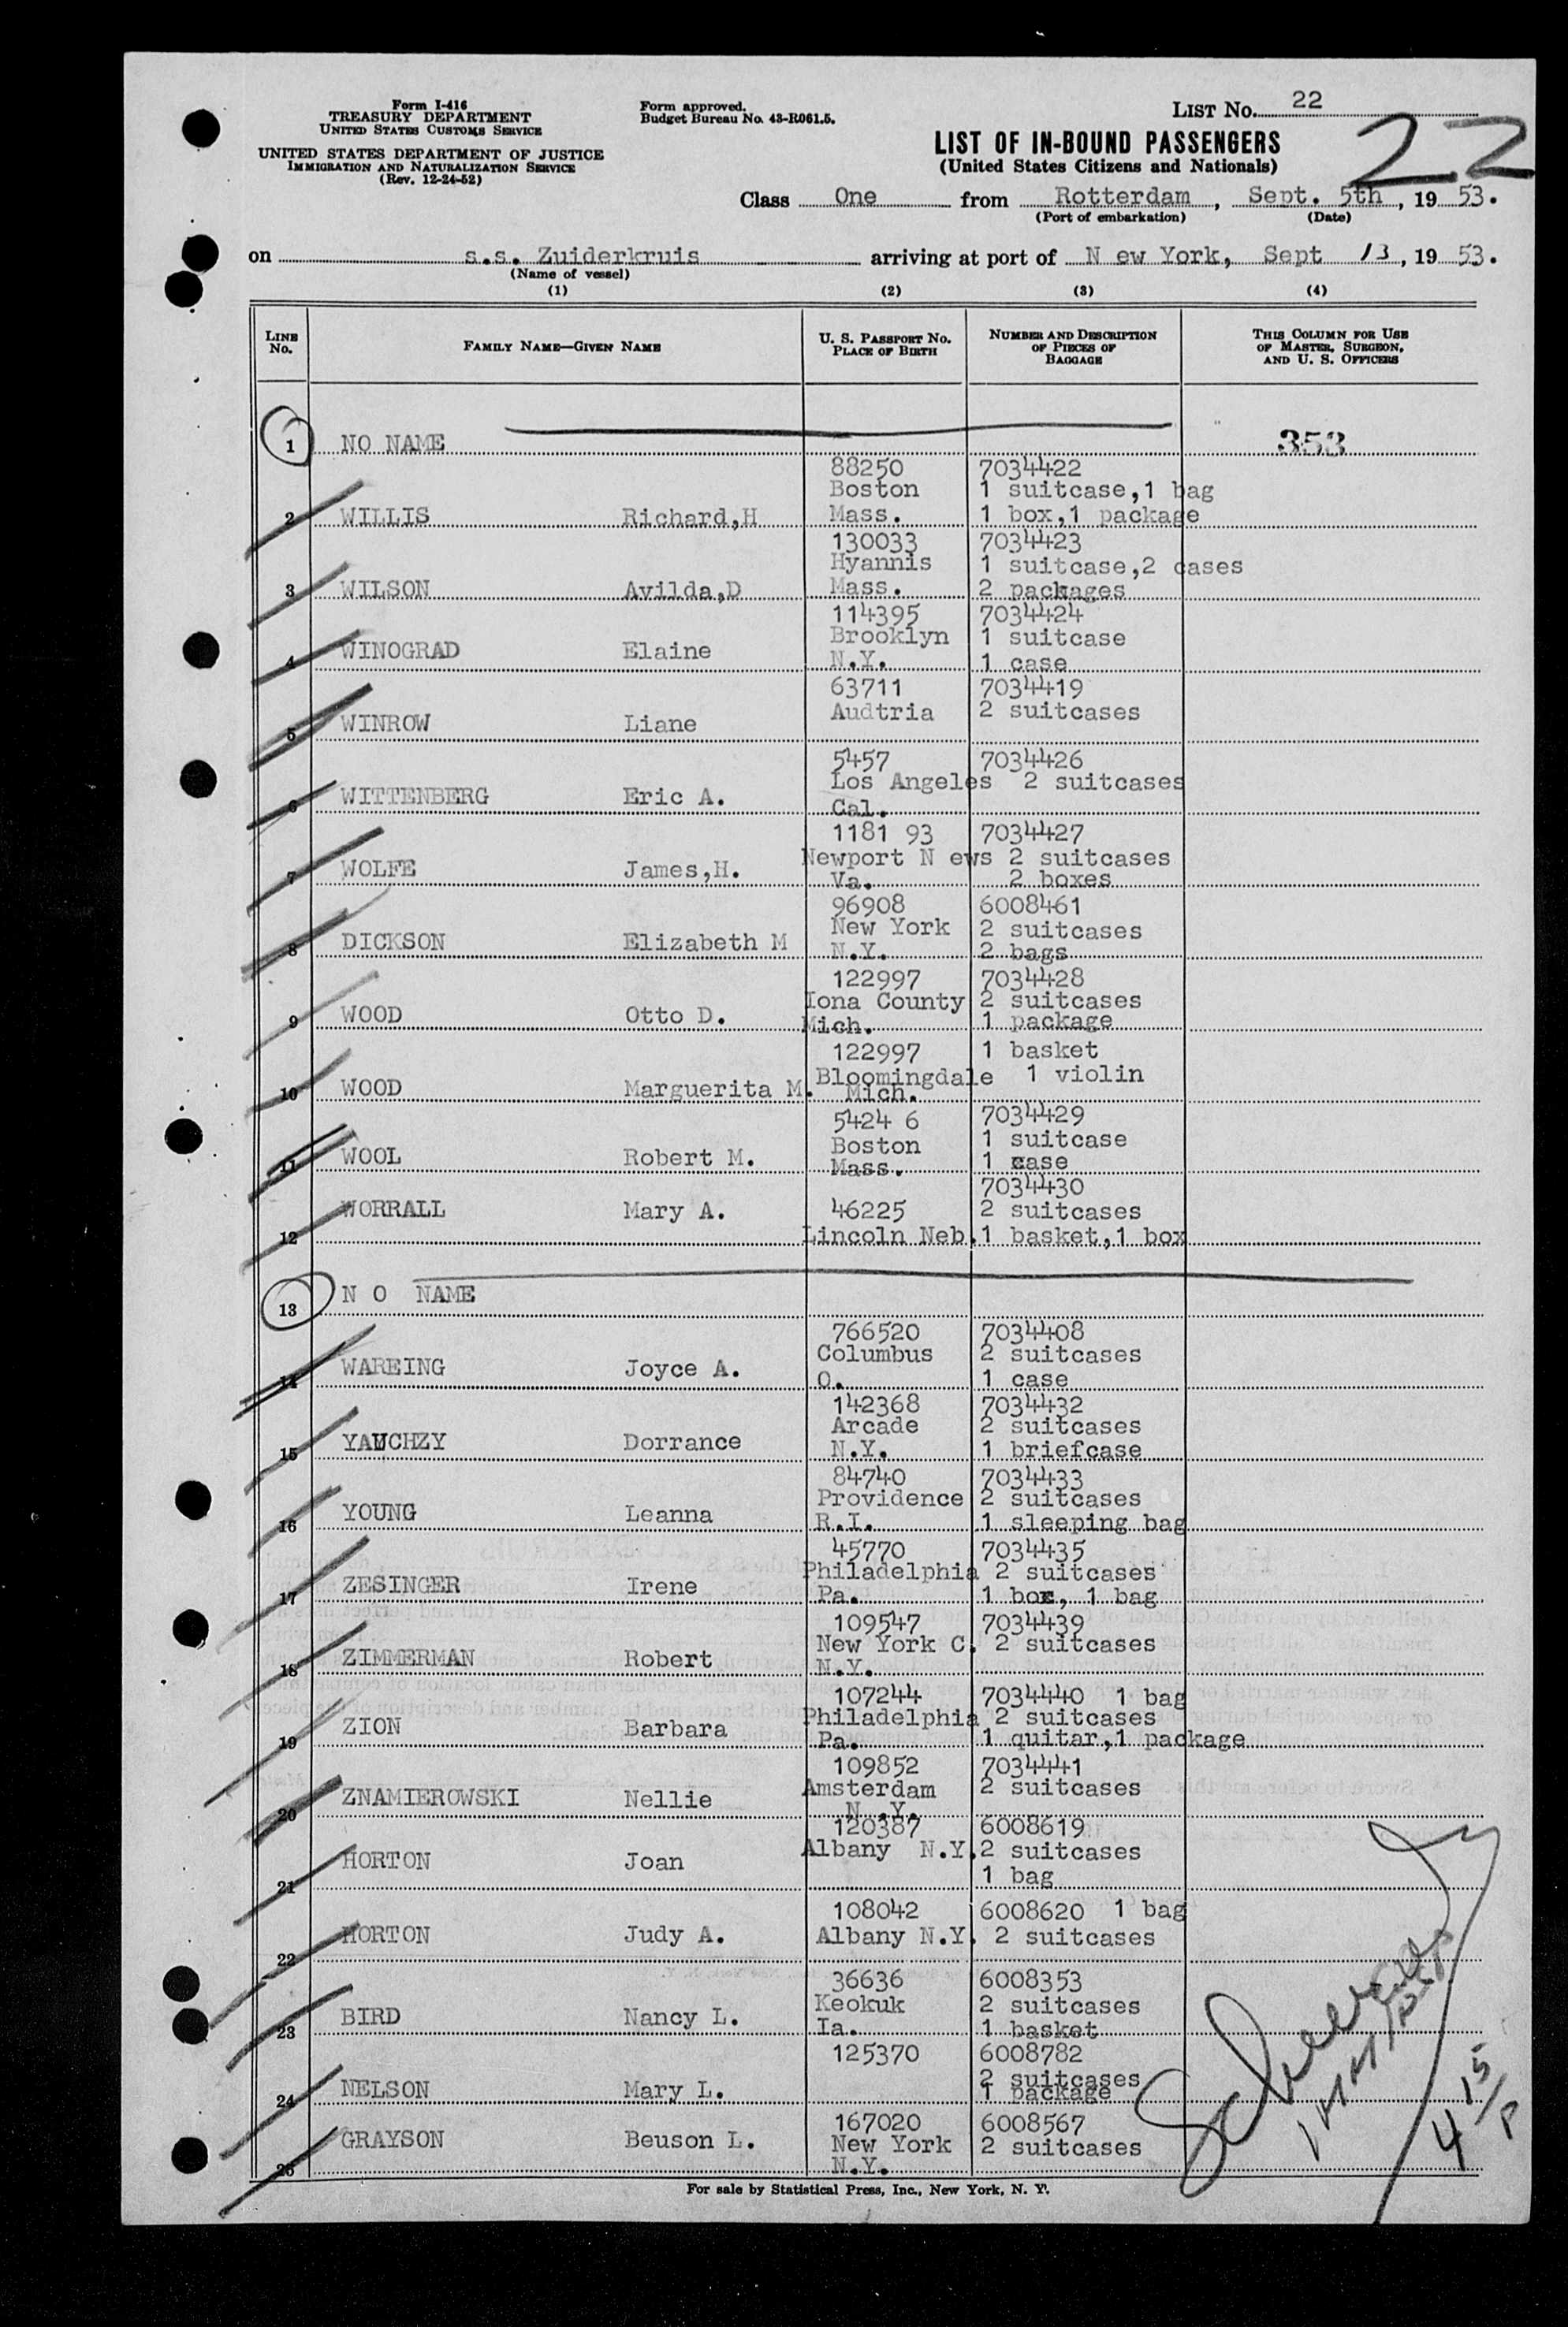 Form I-416
TREASURY DEPARTMENT
UNITED STATES CUSTOMS SERVICE
UNITED STATES DEPARTMENT OF JUSTICE
IMMIGRATION AND NATURALIZATION SERVICE
(Rev. 12-24-52)
Form approved.
Budget Bureau No. 43-R061.5.
LIST No. 22
22
LIST OF IN-BOUND PASSENGERS
(United States Citizens and Nationals)
Class One from Rotterdam, Sept. 5th, 19 53.
(Port of embarkation) (Date)
on s.s. Zuiderkruis arriving at port of N ew York, Sept 13, 19 53.
(Name of vessel)
(1) (2) (3) (4)
LINE No. FAMILY NAME—GIVEN NAME U. S. PASSPORT NO. PLACE OF BIRTH NUMBER AND DESCRIPTION OF PIECES OF BAGGAGE THIS COLUMN FOR USE OF MASTER, SURGEON, AND U. S. OFFICERS
1 NO NAME 353
88250 7034422
Boston 1 suitcase,1 bag
2 WILLIS Richard,H Mass. 1 box,1 package
130033 7034423
Hyannis 1 suitcase,2 cases
3 WILSON Avilda,D Mass. 2 packages
114395 7034424
Brooklyn 1 suitcase
4 WINOGRAD Elaine N.Y. 1 case
63711 7034419
Audtria 2 suitcases
5 WINROW Liane
5457 7034426
Los Angeles 2 suitcases
6 WITTENBERG Eric A. Cal.
1181 93 7034427
Newport N ews 2 suitcases
7 WOLFE James,H. Va. 2 boxes
96908 6008461
New York 2 suitcases
8 DICKSON Elizabeth M N.Y. 2 bags
122997 7034428
Iona County 2 suitcases
9 WOOD Otto D. Mich. 1 package
122997 1 basket
Bloomingdale 1 violin
10 WOOD Marguerita M. Mich.
5424 6 7034429
Boston 1 suitcase
11 WOOL Robert M. Mass. 1 case
7034430
WORRALL Mary A. 46225 2 suitcases
12 Lincoln Neb. 1 basket,1 box
13 N O NAME
766520 7034408
Columbus 2 suitcases
14 WAREING Joyce A. O. 1 case
142368 7034432
Arcade 2 suitcases
15 YAUCHZY Dorrance N.Y. 1 briefcase
84740 7034433
Providence 2 suitcases
16 YOUNG Leanna R.I. 1 sleeping bag
45770 7034435
Philadelphia 2 suitcases
17 ZESINGER Irene Pa. 1 box, 1 bag
109547 7034439
New York C. 2 suitcases
18 ZIMMERMAN Robert N.Y.
107244 7034440 1 bag
Philadelphia 2 suitcases
19 ZION Barbara Pa. 1 quitar,1 package
109852 7034441
Amsterdam 2 suitcases
20 ZNAMIEROWSKI Nellie N.Y.
120387 6008619
Albany N.Y. 2 suitcases
21 HORTON Joan 1 bag
108042 6008620 1 bag
22 HORTON Judy A. Albany N.Y. 2 suitcases
36636 6008353
Keokuk 2 suitcases
23 BIRD Nancy L. Ia. 1 basket
125370 6008782
2 suitcases
24 NELSON Mary L. 1 package
167020 6008567
GRAYSON Beuson L. New York 2 suitcases
25 N.Y.
For sale by Statistical Press, Inc., New York, N. Y.
4 15/P